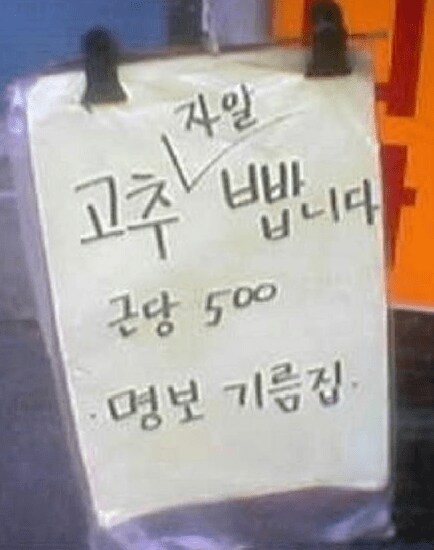 자알
고추 빱니다
근당 500
·명보 기름집.